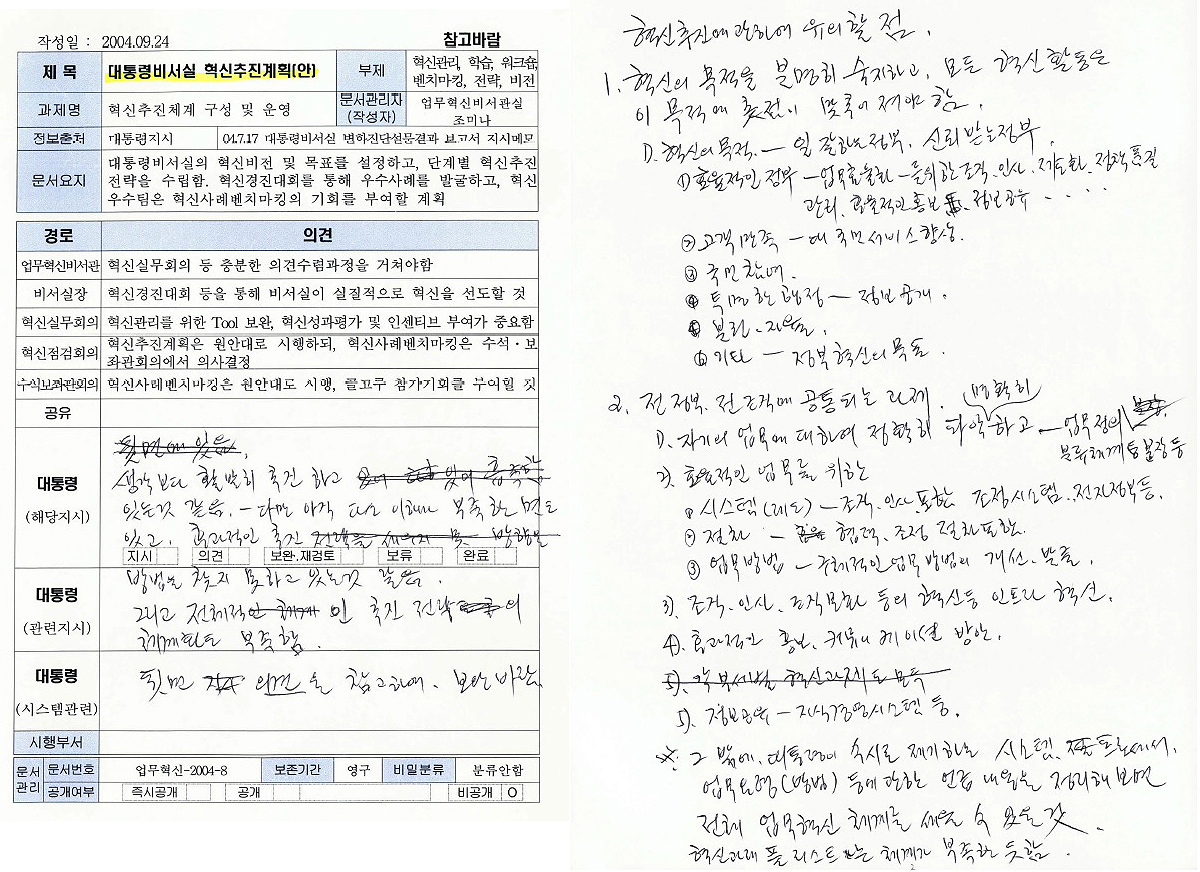 작성일 : 2004.09.24
참고바람
제 목 대통령비서실 혁신추진계획(안) 부제 혁신관리, 학습, 워크숍, 벤치마킹, 전략, 비전
과제명 혁신추진체계 구성 및 운영 문서관리자 (작성자) 업무혁신비서관실 조미나
정보출처 대통령지시 04.7.17 대통령비서실 변화진단설문결과 보고서 지시메모
문서요지 대통령비서실의 혁신비전 및 목표를 설정하고, 단계별 혁신추진
전략을 수립함. 혁신경진대회를 통해 우수사례를 발굴하고, 혁신
우수팀은 혁신사례벤치마킹의 기회를 부여할 계획
경로 의견
업무혁신비서관 혁신실무회의 등 충분한 의견수렴과정을 거쳐야함
비서실장 혁신경진대회 등을 통해 비서실이 실질적으로 혁신을 선도할 것
혁신실무회의 혁신관리를 위한 Tool 보완, 혁신성과평가 및 인센티브 부여가 중요함
혁신점검회의 혁신추진계획은 원안대로 시행하되, 혁신사례벤치마킹은 수석·보
좌관회의에서 의사결정
수석보좌관회의 혁신사례벤치마킹은 원안대로 시행, 골고루 참가기회를 부여할 것
공유
대통령 (해당지시)
뒷면에 있음.
생각보다 활발히 추진 하고
있는것 같음. - 다만 아직 다소 이해가 부족한 면도
있고, 효과적인 추진 전략을 세우지 못 방향을
지시 의견 보완.재검토 보류 완료
대통령 (관련지시)
방법을 찾지 못하고 있는것 같음.
그리고 전체적인 추진 전략의
체계화도 부족함.
대통령 (시스템관련)
뒷면 의견을 참고하여, 보완바람
시행부서
문서관리 문서번호 업무혁신-2004-8 보존기간 영구 비밀분류 분류안함
공개여부 즉시공개 공개 비공개 O
혁신추진에 관하여 유의할 점.
1. 혁신의 목적을 분명히 숙지하고, 모든 혁신활동은
이 목적에 초점이 맞추어져야 함.
1). 혁신의 목적. - 일 잘하는 정부, 신뢰받는 정부.
① 효율적인 정부 - 업무효율화 - 를 위한 조직.인사.제도화.정책품질
관리, 효율적인 홍보, 정보공유 . . . .
② 고객만족 - 대 국민서비스향상.
③ 국민참여.
④ 투명한 행정 - 정보공개.
⑤ 분권.자율.
⑥ 기타 - 정부혁신의 목표.
2. 전정부. 전조직에 공통되는 과제.
명확히
1). 자기의 업무에 대하여 정확히 파악하고 - 업무정의
분류체계
2). 효율적인 업무를 위한
① 시스템(제도) - 조직.인사 포함 조정시스템.전자정부등.
② 절차 - 협력, 조정 절차포함.
③ 업무방법 - 구체적인 업무방법의 개선.발굴.
3). 조직.인사.조직문화 등의 혁신등 인프라 혁신.
4). 효과적인 홍보, 커뮤니케이션 방안.
5). 각 부서별 혁신과제도 모두
5). 정보공유 - 지식경영시스템 등.
※. 그 밖에, 대통령이 수시로 제기하는 시스템, 프로세서,
업무요령(방법) 등에 관한 언급 내용을 정리해보면
전체 업무혁신 체계를 세울 수 있을 것.
혁신과제 풀 리스트는 체계가 부족한 듯함.